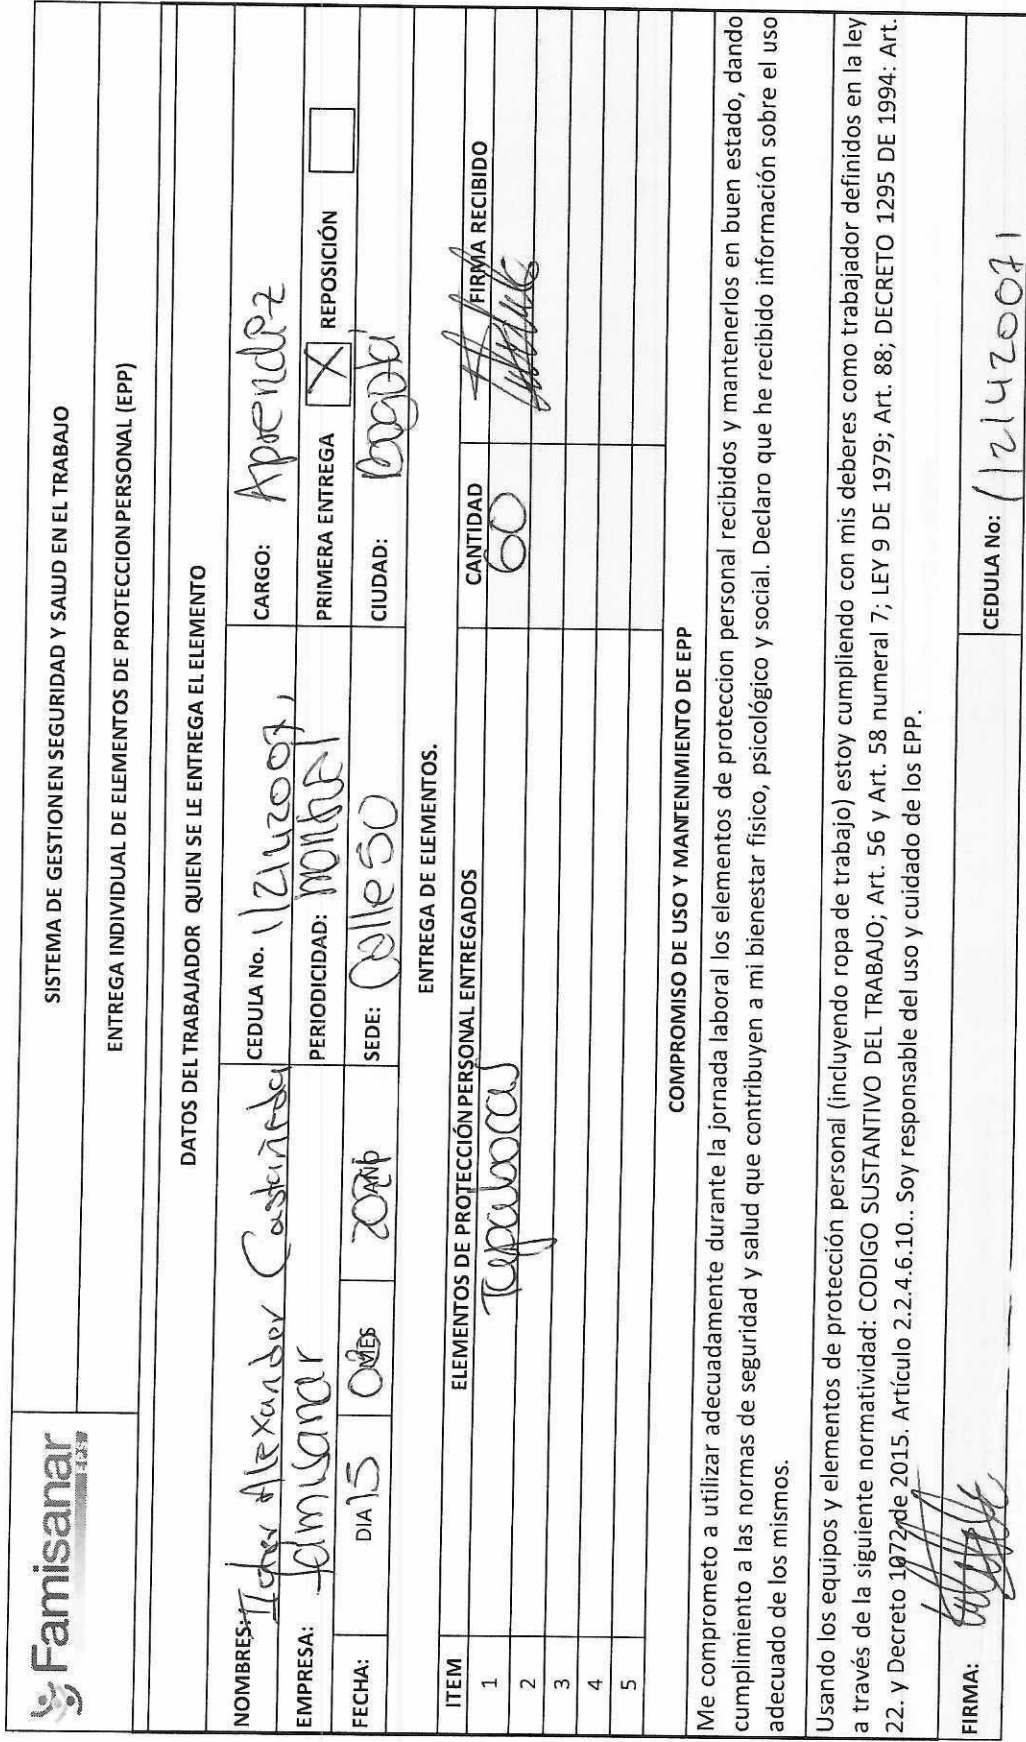 Famisanar
EPS
SISTEMA DE GESTION EN SEGURIDAD Y SALUD EN EL TRABAJO
ENTREGA INDIVIDUAL DE ELEMENTOS DE PROTECCION PERSONAL (EPP)
DATOS DEL TRABAJADOR QUIEN SE LE ENTREGA EL ELEMENTO
NOMBRES: Alexander Castañeda CEDULA No. 1121420071 CARGO: Aprendiz
EMPRESA: famisanar PERIODICIDAD: PRIMERA ENTREGA X REPOSICIÓN
FECHA: DIA 15 MES AÑO SEDE: Calle 50 CIUDAD: Bogotá
ENTREGA DE ELEMENTOS.
ITEM ELEMENTOS DE PROTECCIÓN PERSONAL ENTREGADOS CANTIDAD FIRMA RECIBIDO
1 Tapabocas 60
2
3
4
5
COMPROMISO DE USO Y MANTENIMIENTO DE EPP
Me comprometo a utilizar adecuadamente durante la jornada laboral los elementos de proteccion personal recibidos y mantenerlos en buen estado, dando
cumplimiento a las normas de seguridad y salud que contribuyen a mi bienestar físico, psicológico y social. Declaro que he recibido información sobre el uso
adecuado de los mismos.
Usando los equipos y elementos de protección personal (incluyendo ropa de trabajo) estoy cumpliendo con mis deberes como trabajador definidos en la ley
a través de la siguiente normatividad: CODIGO SUSTANTIVO DEL TRABAJO; Art. 56 y Art. 58 numeral 7; LEY 9 DE 1979; Art. 88; DECRETO 1295 DE 1994: Art.
22. y Decreto 1072 de 2015. Artículo 2.2.4.6.10.. Soy responsable del uso y cuidado de los EPP.
FIRMA: CEDULA No: 1121420071